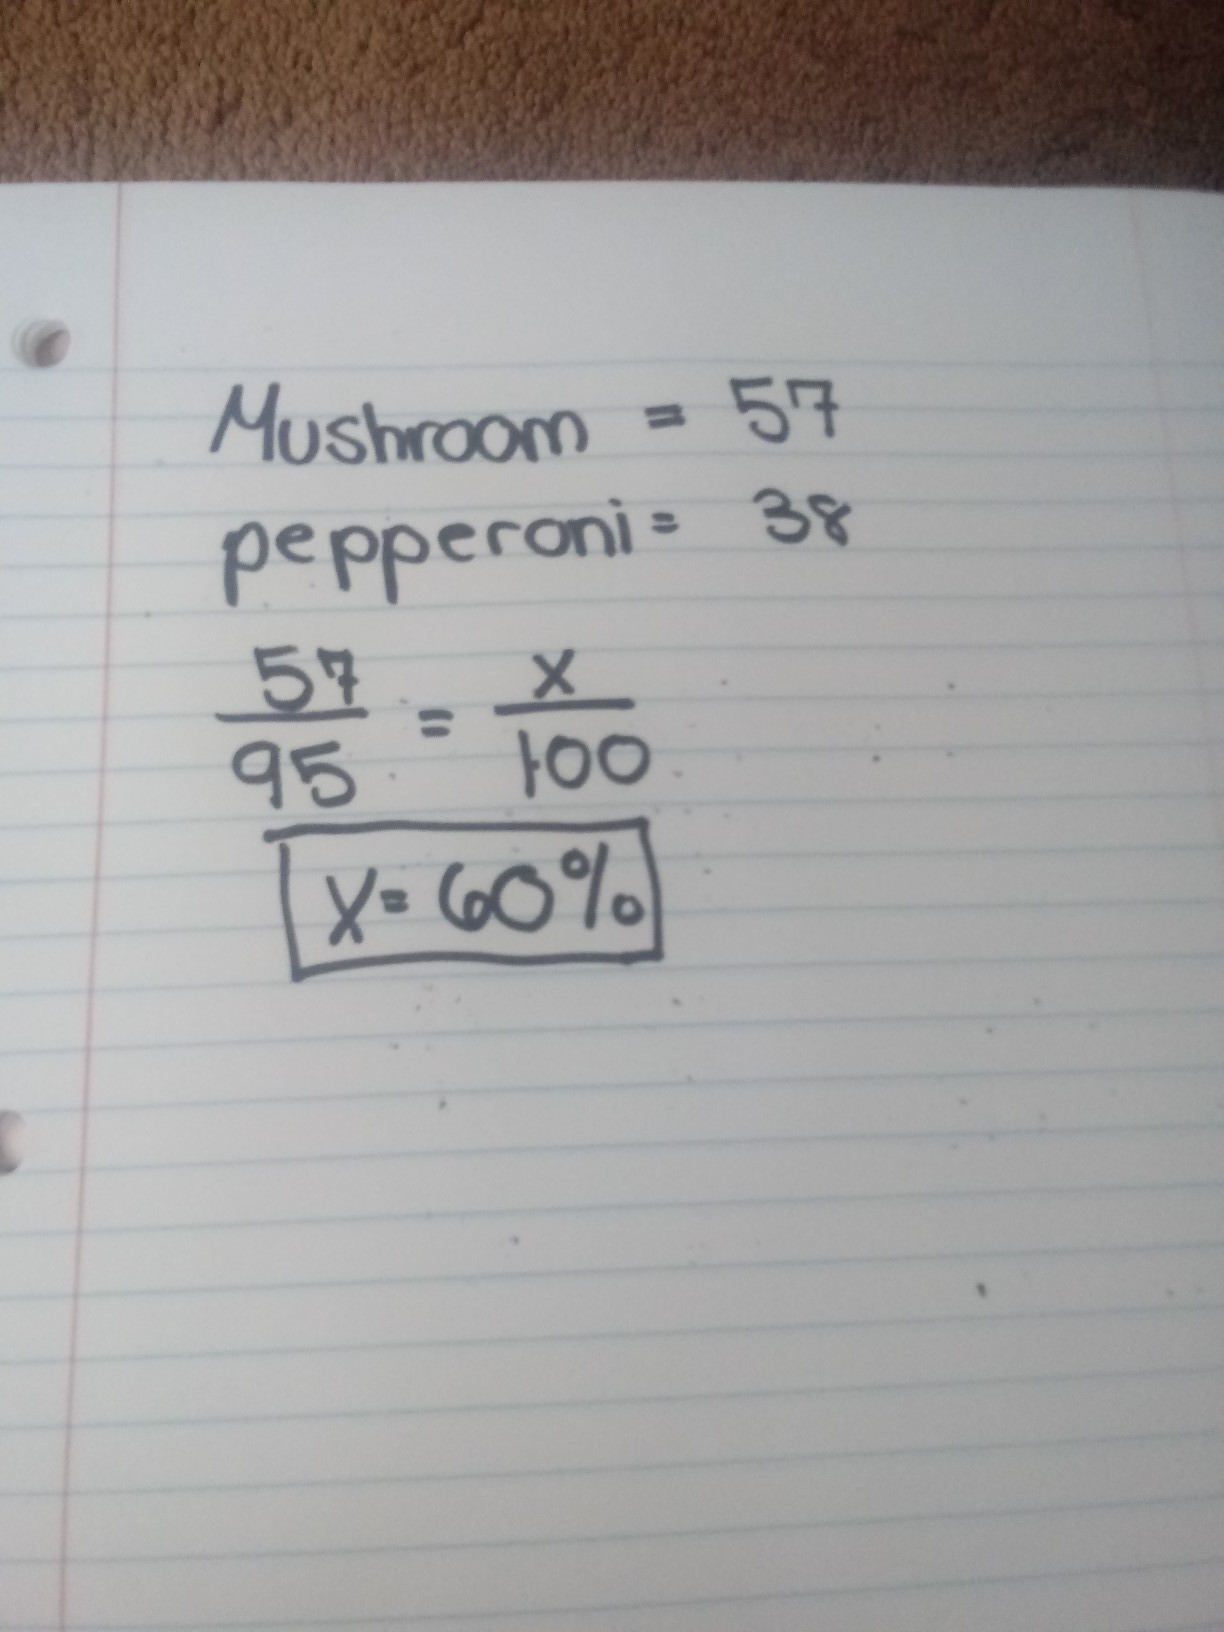 Mushroom = 57
pepperoni = 38
57/95 = x/100
x = 60%